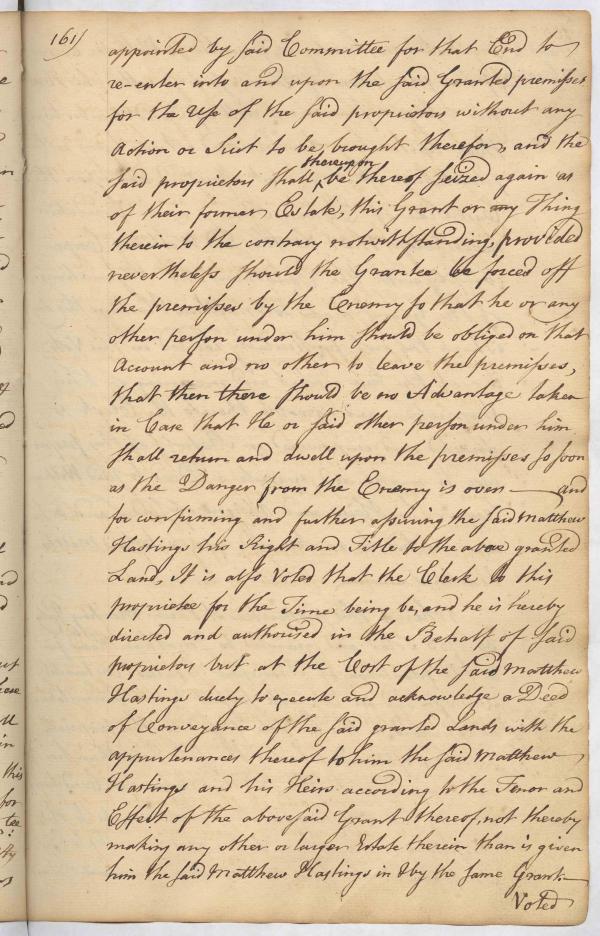 161)
appointed by said Committee for that End to
re-enter into and upon the said Granted premisses
for the Use of the said proprietors without any
Action or Suit to be brought therefor, and the
said proprietors shall thereupon be thereof Seized again as
of their former Estate, this Grant or any Thing
therein to the contrary notwithstanding, provided
nevertheless should the Grantee be forced off
the premisses by the Enemy so that he or any
other person under him should be obliged on that
Account and no other to leave the premisses,
that then there should be no Advantage taken
in Case that He or said other person under him
shall return and dwell upon the premisses so soon
as the Danger from the Enemy is over — and
for confirming and further assuring the said Matthew
Hastings his Right and Title to the above granted
Land, It is also Voted that the Clerk to this
proprietee for the Time being be, and he is hereby
directed and authorised in the Behalf of said
proprietors but at the Cost of the said Matthew
Hastings duely to execute and acknowledge a Deed
of Conveyance of the said granted Lands with the
appurtenances thereof to him the said Matthew
Hastings and his Heirs according to the Tenor and
Effect of the abovesaid Grant thereof, not thereby
making any other or larger Estate therein than is given
him the said Matthew Hastings in & by the same Grant.—
Voted